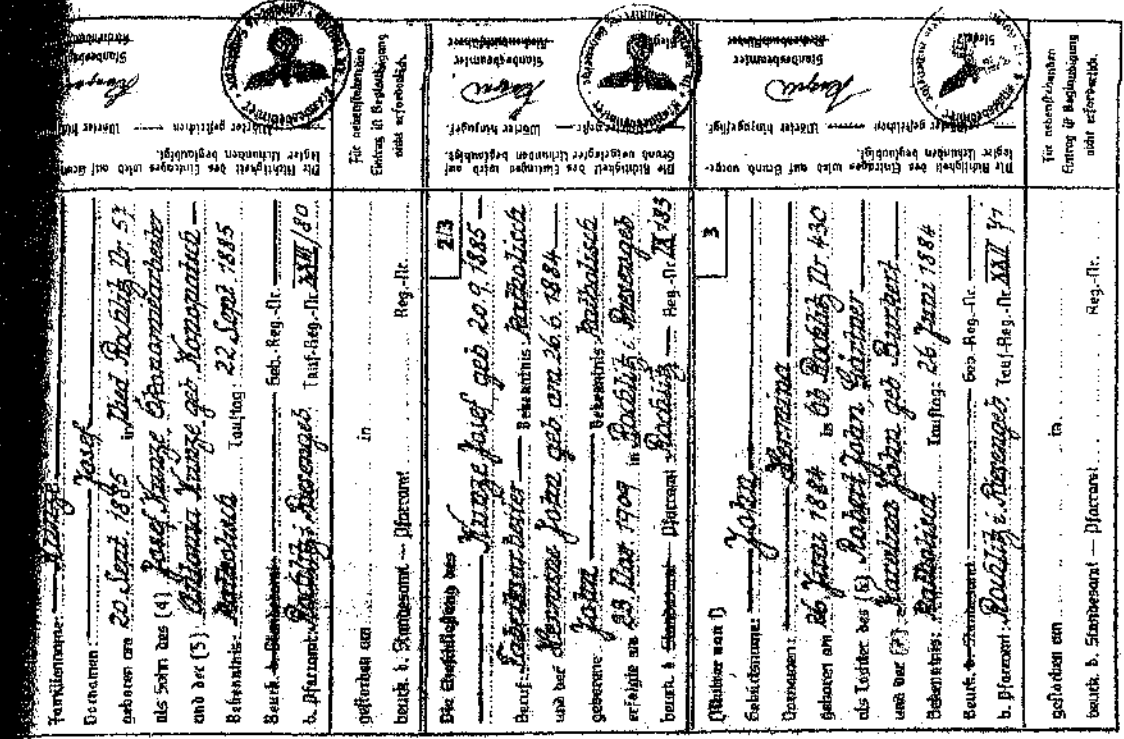 Familienname: Kunze
Vornamen: Josef
geboren am 20. Sept. 1885 in Nied. Rochlitz Nr. 57
als Sohn des (4) Josef Kunze, Ökonomiearbeiter
und der (5) Kunze geb. Konopatsch
Bekenntnis: Katholisch Tauftag: 22 Sept 1885
Beurk. b. Standesamt: Geb.-Reg.-Nr.
b. Pfarramt: Rochlitz i. Riesengeb. Tauf-Reg.-Nr. XXVI/80
gestorben am in
beurk. b. Standesamt — Pfarramt Reg.-Nr.
Die Richtigkeit des Eintrages wird auf Grund
legter Urkunden beglaubigt.
Wörter gestrichen Wörter
Standesbeamter
Für nebenstehenden
Eintrag ist Beglaubigung
nicht erforderlich.
2/3
Die Eheschließung des
Kunze Josef geb. 20.9.1885
Beruf: Fabrikarbeiter Bekenntnis: Katholisch
und der Hermine John geb. am 26.6.1884
geborene John Bekenntnis: Katholisch
erfolgte am 23. Nov. 1909 in Rochlitz i. Riesengeb.
beurk. b. Standesamt — Pfarramt Rochlitz Reg.-Nr. IX/183
Die Richtigkeit des Eintrages wird auf
Grund vorgelegter Urkunden beglaubigt.
Wörter hinzugef.
Standesbeamter
Kirchenbuchführer
3
(Mutter von 1)
Geburtsname: John
Vornamen: Hermina
geboren am 26 Juni 1884 in Ob. Rochlitz Nr 430
als Tochter des (6) Robert John, Gärtner
und der (7) John geb
Bekenntnis: Katholisch Tauftag: 26 Juni 1884
Beurk. b. Standesamt Geb.-Reg.-Nr.
b. Pfarramt: Rochlitz i. Riesengeb. Tauf-Reg.-Nr.
gestorben am in
beurk. b. Standesamt — Pfarramt Reg.-Nr.
Die Richtigkeit des Eintrages wird auf Grund vorge-
legter Urkunden beglaubigt.
Wörter gestrichen Wörter hinzugefügt.
Standesbeamter
Kirchenbuchführer
Für nebenstehenden
Eintrag ist Beglaubigung
nicht erforderlich.